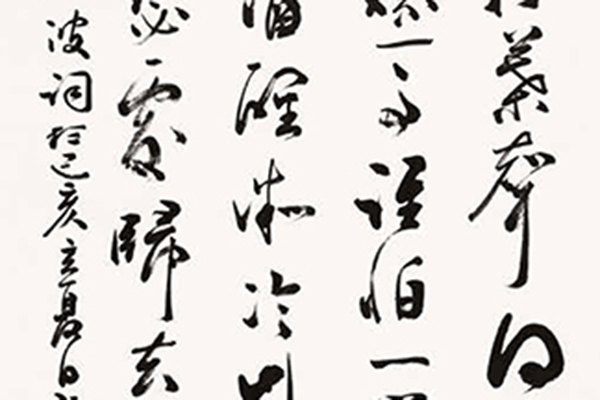 打葉聲何
馬誰怕一
酒醒微冷山
瑟處歸去
波詞於己亥立夏日